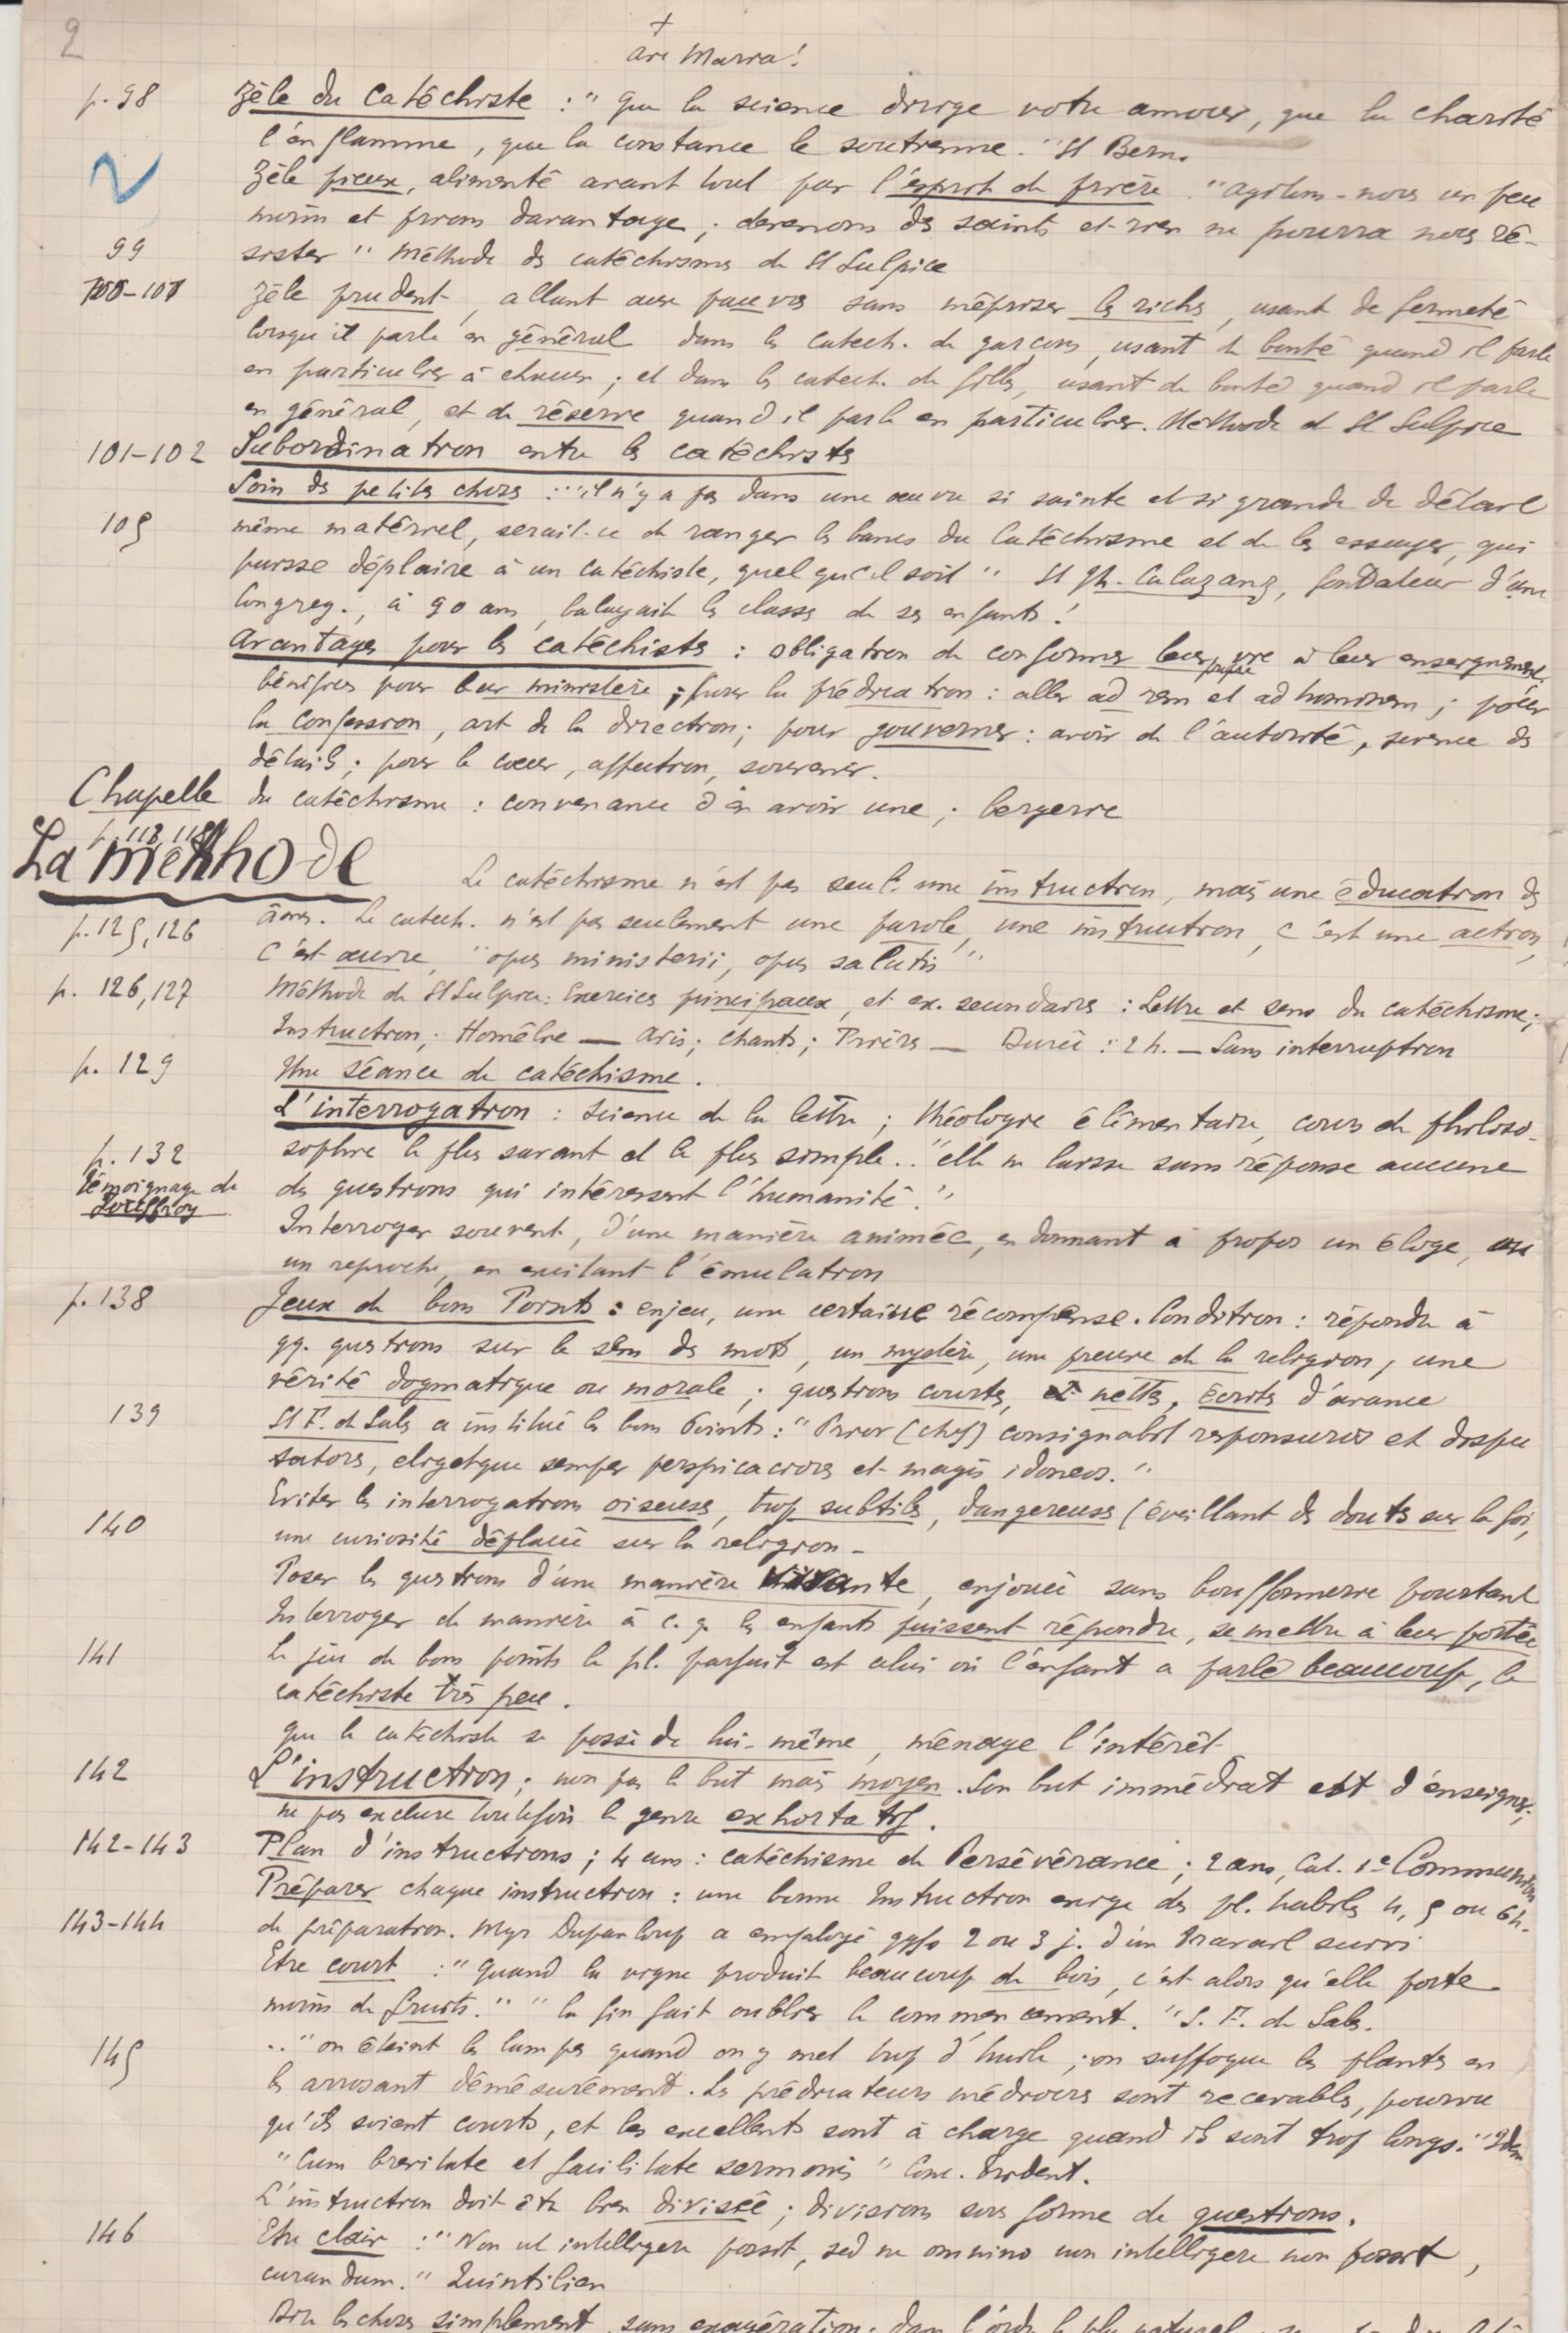 2
+
Ave Maria!
p. 98 Zèle du Catéchiste : " Que la science dirige votre amour, que la charité
l'enflamme, que la constance le soutienne. " St Bern.
Zèle pieux, alimenté avant tout par l'esprit de prière. " agitons-nous un peu
moins et prions davantage ; devenons des saints et rien ne pourra nous ré-
99 sister " Méthode des catéchismes de St Sulpice
100-101 Zèle prudent, allant aux pauvres sans mépriser les riches, usant de fermeté
lorsqu'il parle en général dans les catech. de garçons, usant de bonté quand il parle
en particulier à chacun ; et dans les catech. de filles, usant de bonté quand il parle
en général, et de réserve quand il parle en particulier. Méthode de St Sulpice
101-102 Subordination entre les catéchistes
Soin des petites choses : " il n'y a pas dans une œuvre si sainte et si grande de détail
105 même matériel, serait-ce de ranger les bancs du Catéchisme et de les essuyer, qui
puisse déplaire à un catéchiste, quel qu'il soit " St Jh. Calazanz, fondateur d'une
Congreg., à 90 ans, balayait les classes de ses enfants !
Avantages pour les catéchistes : obligation de conformer leur propre vie à leur enseignement,
bénéfices pour leur ministère ; pour la prédication : aller ad rem et ad hominem ; pour
la confession, art de la direction ; pour gouverner : avoir de l'autorité, science des
détails ; pour le cœur, affection, souvenir.
Chapelle du catéchisme : convenance d'en avoir une ; bergerie
p. 113 118
La méthode Le catéchisme n'est pas seult. une instruction, mais une éducation des
p. 125, 126 âmes. Le catech. n'est pas seulement une parole, une instruction, c'est une action,
c'est œuvre, " opus ministerii, opus salutis "
p. 126, 127 Méthode de St Sulpice : Exercices principaux, et ex. secondaires : Lettre et sens du catéchisme ;
Instruction ; Homélie — avis ; chants ; Prières — Durée : 2 h. — Sans interruption
p. 129 Une séance de catéchisme.
L'interrogation : science de la lettre ; théologie élémentaire, cours de philoso-
p. 132 sophie le plus savant et le plus simple.. " elle ne laisse sans réponse aucune
témoignage de Jouffroy des questions qui intéressent l'humanité. "
Interroger souvent, d'une manière animée, en donnant à propos un éloge, ou
un reproche, en excitant l'émulation
p. 138 Jeux de bons Points : enjeu, une certaine récompense. Condition : répondre à
qq. questions sur le sens des mots, un mystère, une preuve de la religion, une
vérité dogmatique ou morale ; questions courtes, et nettes, écrites d'avance
139 St F. de Sales a institué les bons Points : " Prior (chef) consignabit responsuros et dispu
tatores, eligetque semper perspicaciores et magis idoneos. "
Eviter les interrogations oiseuses, trop subtiles, dangereuses (éveillant des doutes sur la foi,
140 une curiosité déplacée sur la religion -
Poser les questions d'une manière vivante, enjouée sans bouffonnerie pourtant
Interroger de manière à c. q. les enfants puissent répondre, se mettre à leur portée
141 Le jeu de bons points le pl. parfait est celui où l'enfant a parlé beaucoup, le
catéchiste très peu.
Que le catéchiste se possède lui-même, ménage l'intérêt
142 L'instruction ; non pas le but mais moyen. Son but immédiat est d'enseigner,
ne pas exclure toutefois le genre exhortatif.
142-143 Plan d'instructions ; 4 ans : catéchisme de Persévérance ; 2 ans, Cat. 1e Communion
Préparer chaque instruction : une bonne Instruction exige des pl. habiles 4, 5 ou 6 h.
143-144 de préparation. Mgr Dupanloup a employé qqfs 2 ou 3 j. d'un travail suivi
Etre court : " Quand la vigne produit beaucoup de bois, c'est alors qu'elle porte
moins de fruits. " " la fin fait oublier le commencement. " S. F. de Sales.
145 .. " on éteint les lampes quand on y met trop d'huile ; on suffoque les plantes en
les arrosant démesurément. Les prédicateurs médiocres sont recevables, pourvu
qu'ils soient courts, et les excellents sont à charge quand ils sont trop longs. " Idem
" Cum brevitate et facilitate sermonis " Conc. Trident.
L'instruction doit être bien divisée ; divisions sous forme de questions.
146 Etre clair : " Non ut intelligere possit, sed ne omnino non intelligere non possit,
curandum. " Quintilien
Dire les choses simplement, sans exagération ; dans l'ordre le plus naturel